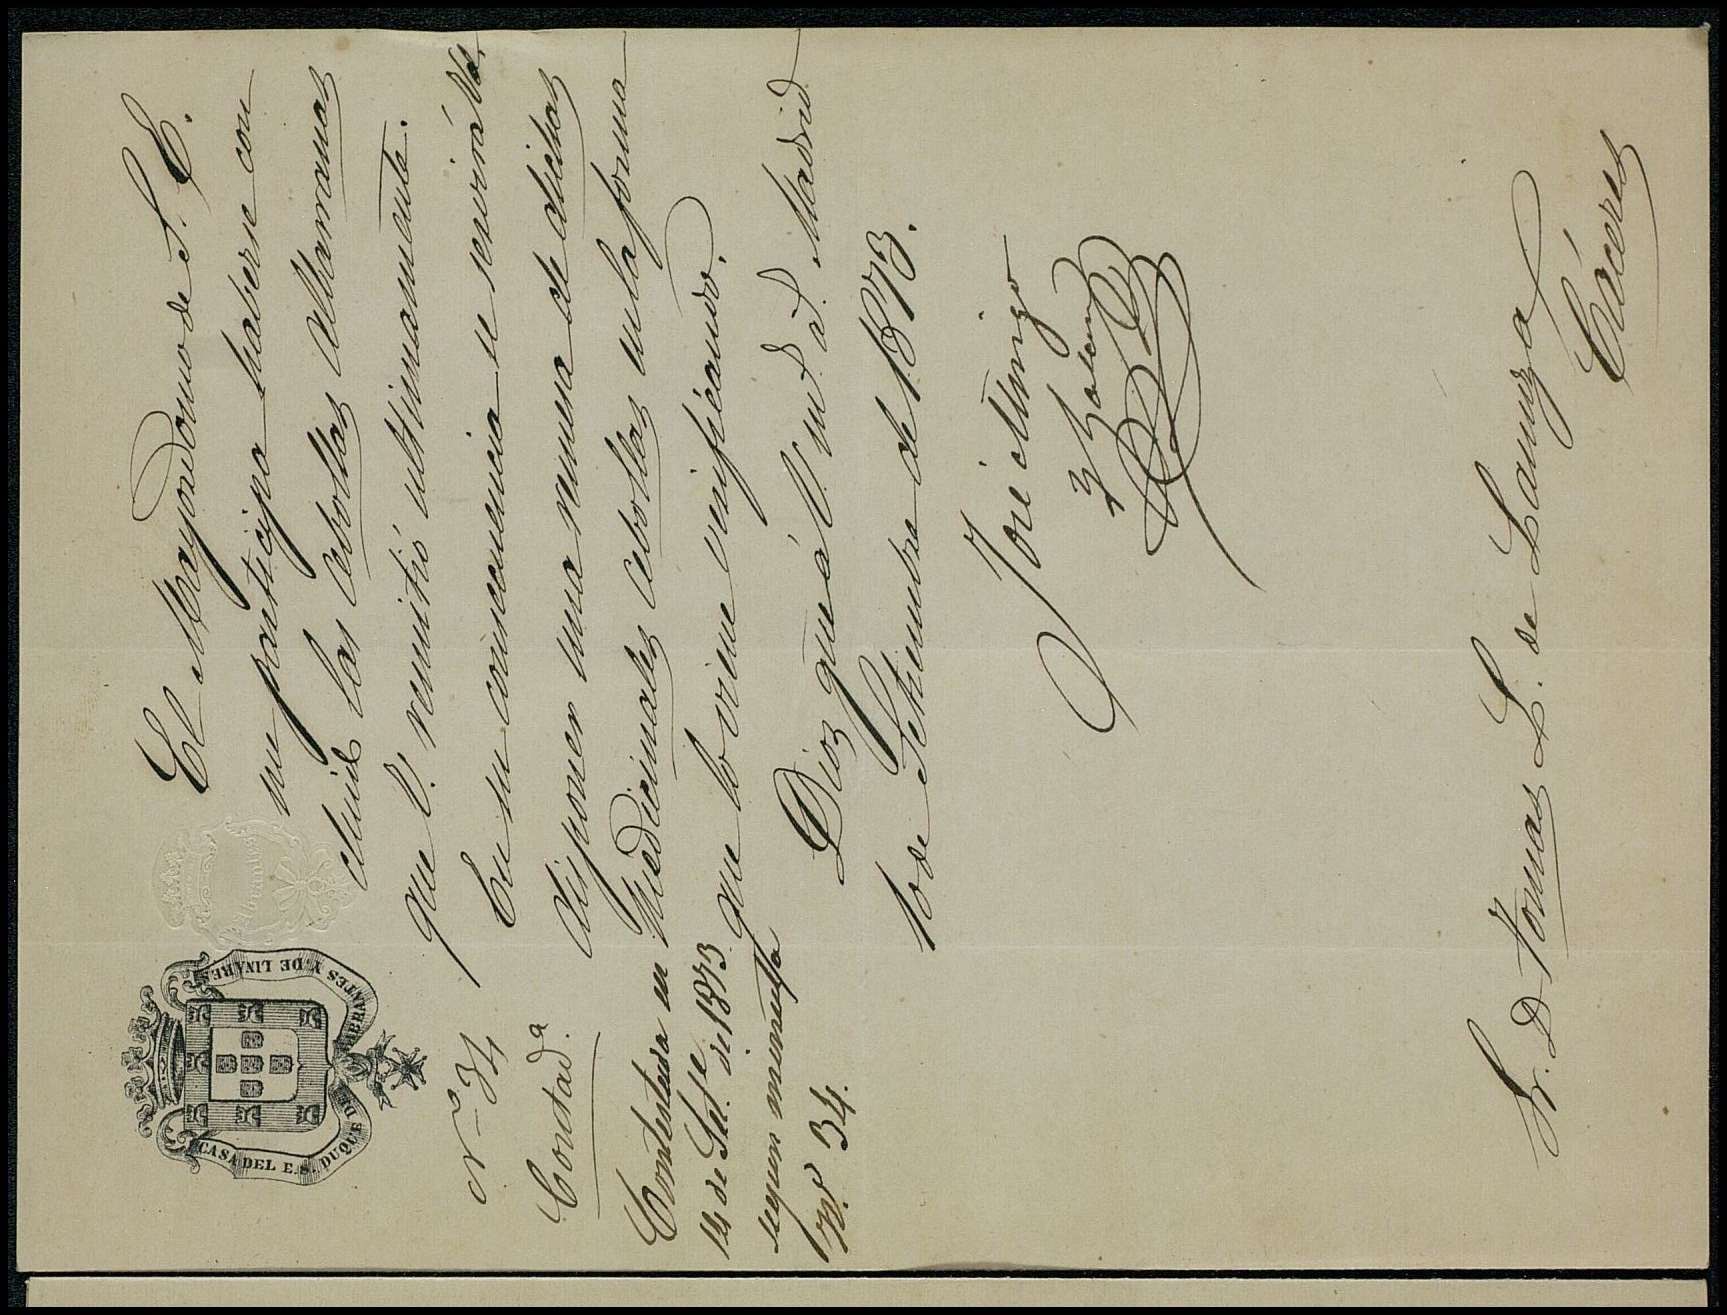 CASA DEL E. S. DUQUE DE ABRANTES Y DE LINARES
Nº 34
Contad.ª
Contestada en
14 de Set.e de 1873
segun minuta
Nº. 34.
El Mayordomo de S. E.
me participa haberse con
cluido las cebollas Albarranas
que V. remitió ultimamente.
En su consecuencia se servirá Vd.
disponer una remesa de dichas
Medicinales cebollas en la forma
que lo viene verificando.
Dios gue á V. m.s a.s Madrid
10 de Setiembre de 1873.
José Mingo
Sr. D Tomas L. de Lanuza
Cáceres